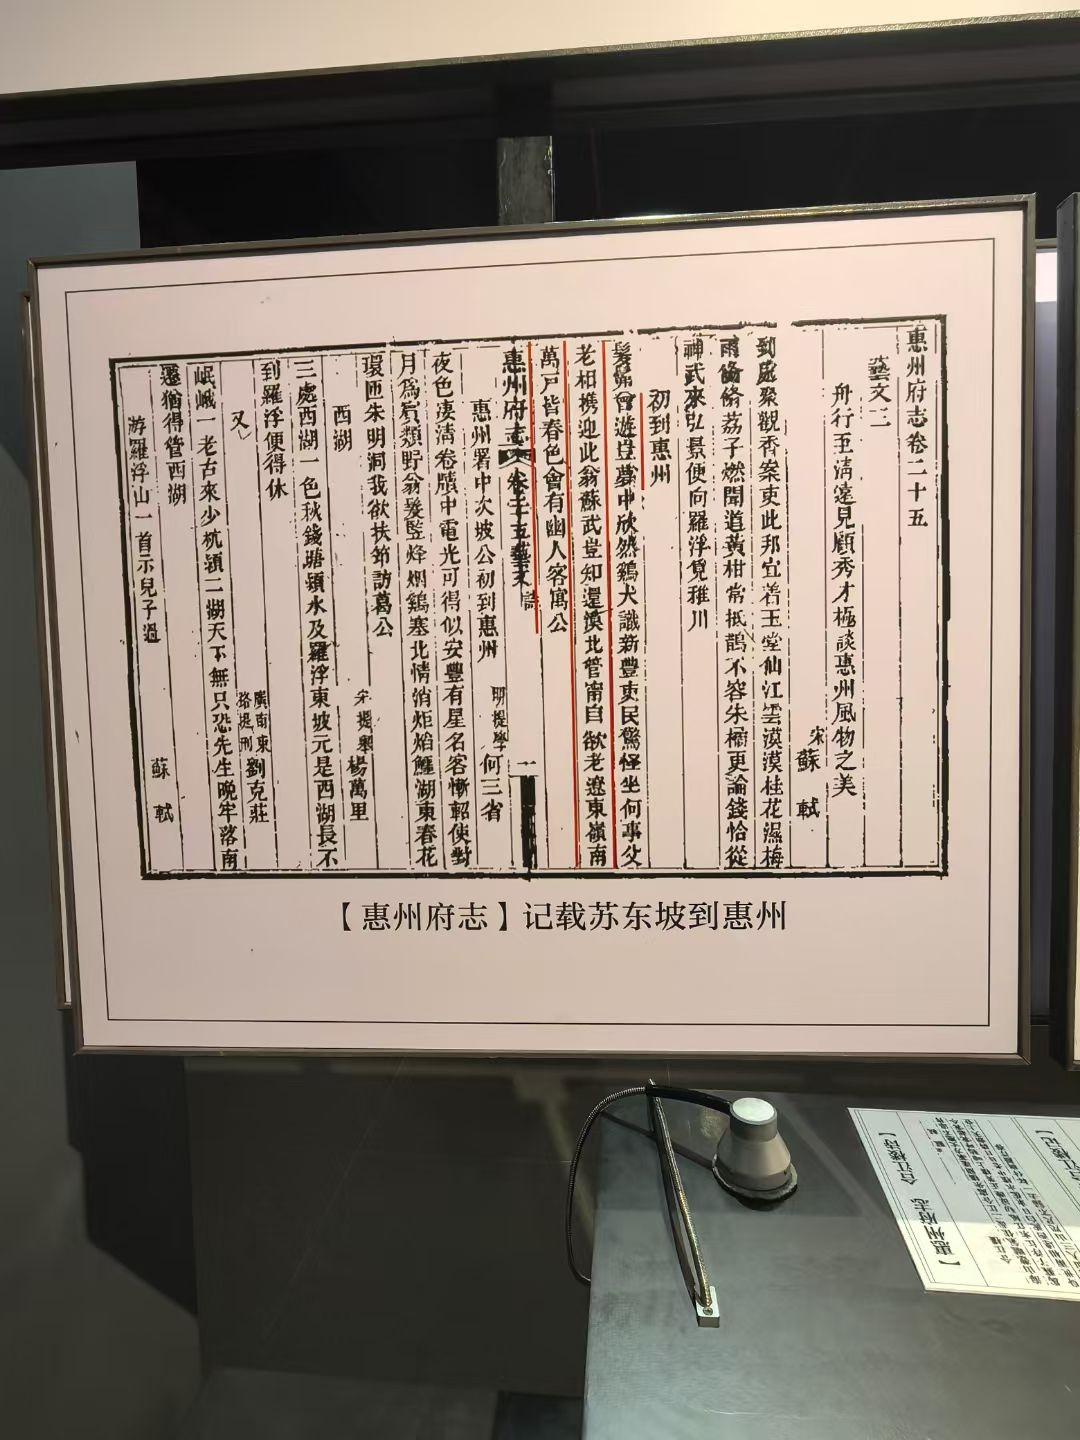 惠州府志卷二十五
藝文三
舟行至清遠見顧秀才極談惠州風物之美
宋蘇軾
到處聚觀香案吏此邦宜着玉堂仙江雲漠漠桂花濕梅
雨翛翛荔子燃聞道黃柑常抵鵲不容朱橘更論錢恰從
神武來弘景便向羅浮覓稚川
初到惠州
髣髴曾遊豈夢中欣然鷄犬識新豐吏民驚怪坐何事父
老相攜迎此翁蘇武豈知還漠北管甯自欲老遼東嶺南
萬戶皆春色會有幽人客寓公
惠州府志 卷二十五藝文 詩 一
惠州署中次坡公初到惠州
明提學何三省
夜色凄清卷牘中電光可得似安豐有星名客慚軺使對
月爲賓類野翁髮監烽烟鷄塞北情消炬焰鱷湖東春花
環匝朱明洞我欲扶筇訪葛公
西湖
宋提舉楊萬里
三處西湖一色秋錢塘潁水及羅浮東坡元是西湖長不
到羅浮便得休
又
廣南東路提刑劉克莊
岷峨一老古來少杭潁二湖天下無只恐先生晚牢落南
遷猶得管西湖
游羅浮山一首示兒子過
蘇軾
【惠州府志】记载苏东坡到惠州
【惠州府志 合江楼诗】
合江楼记】